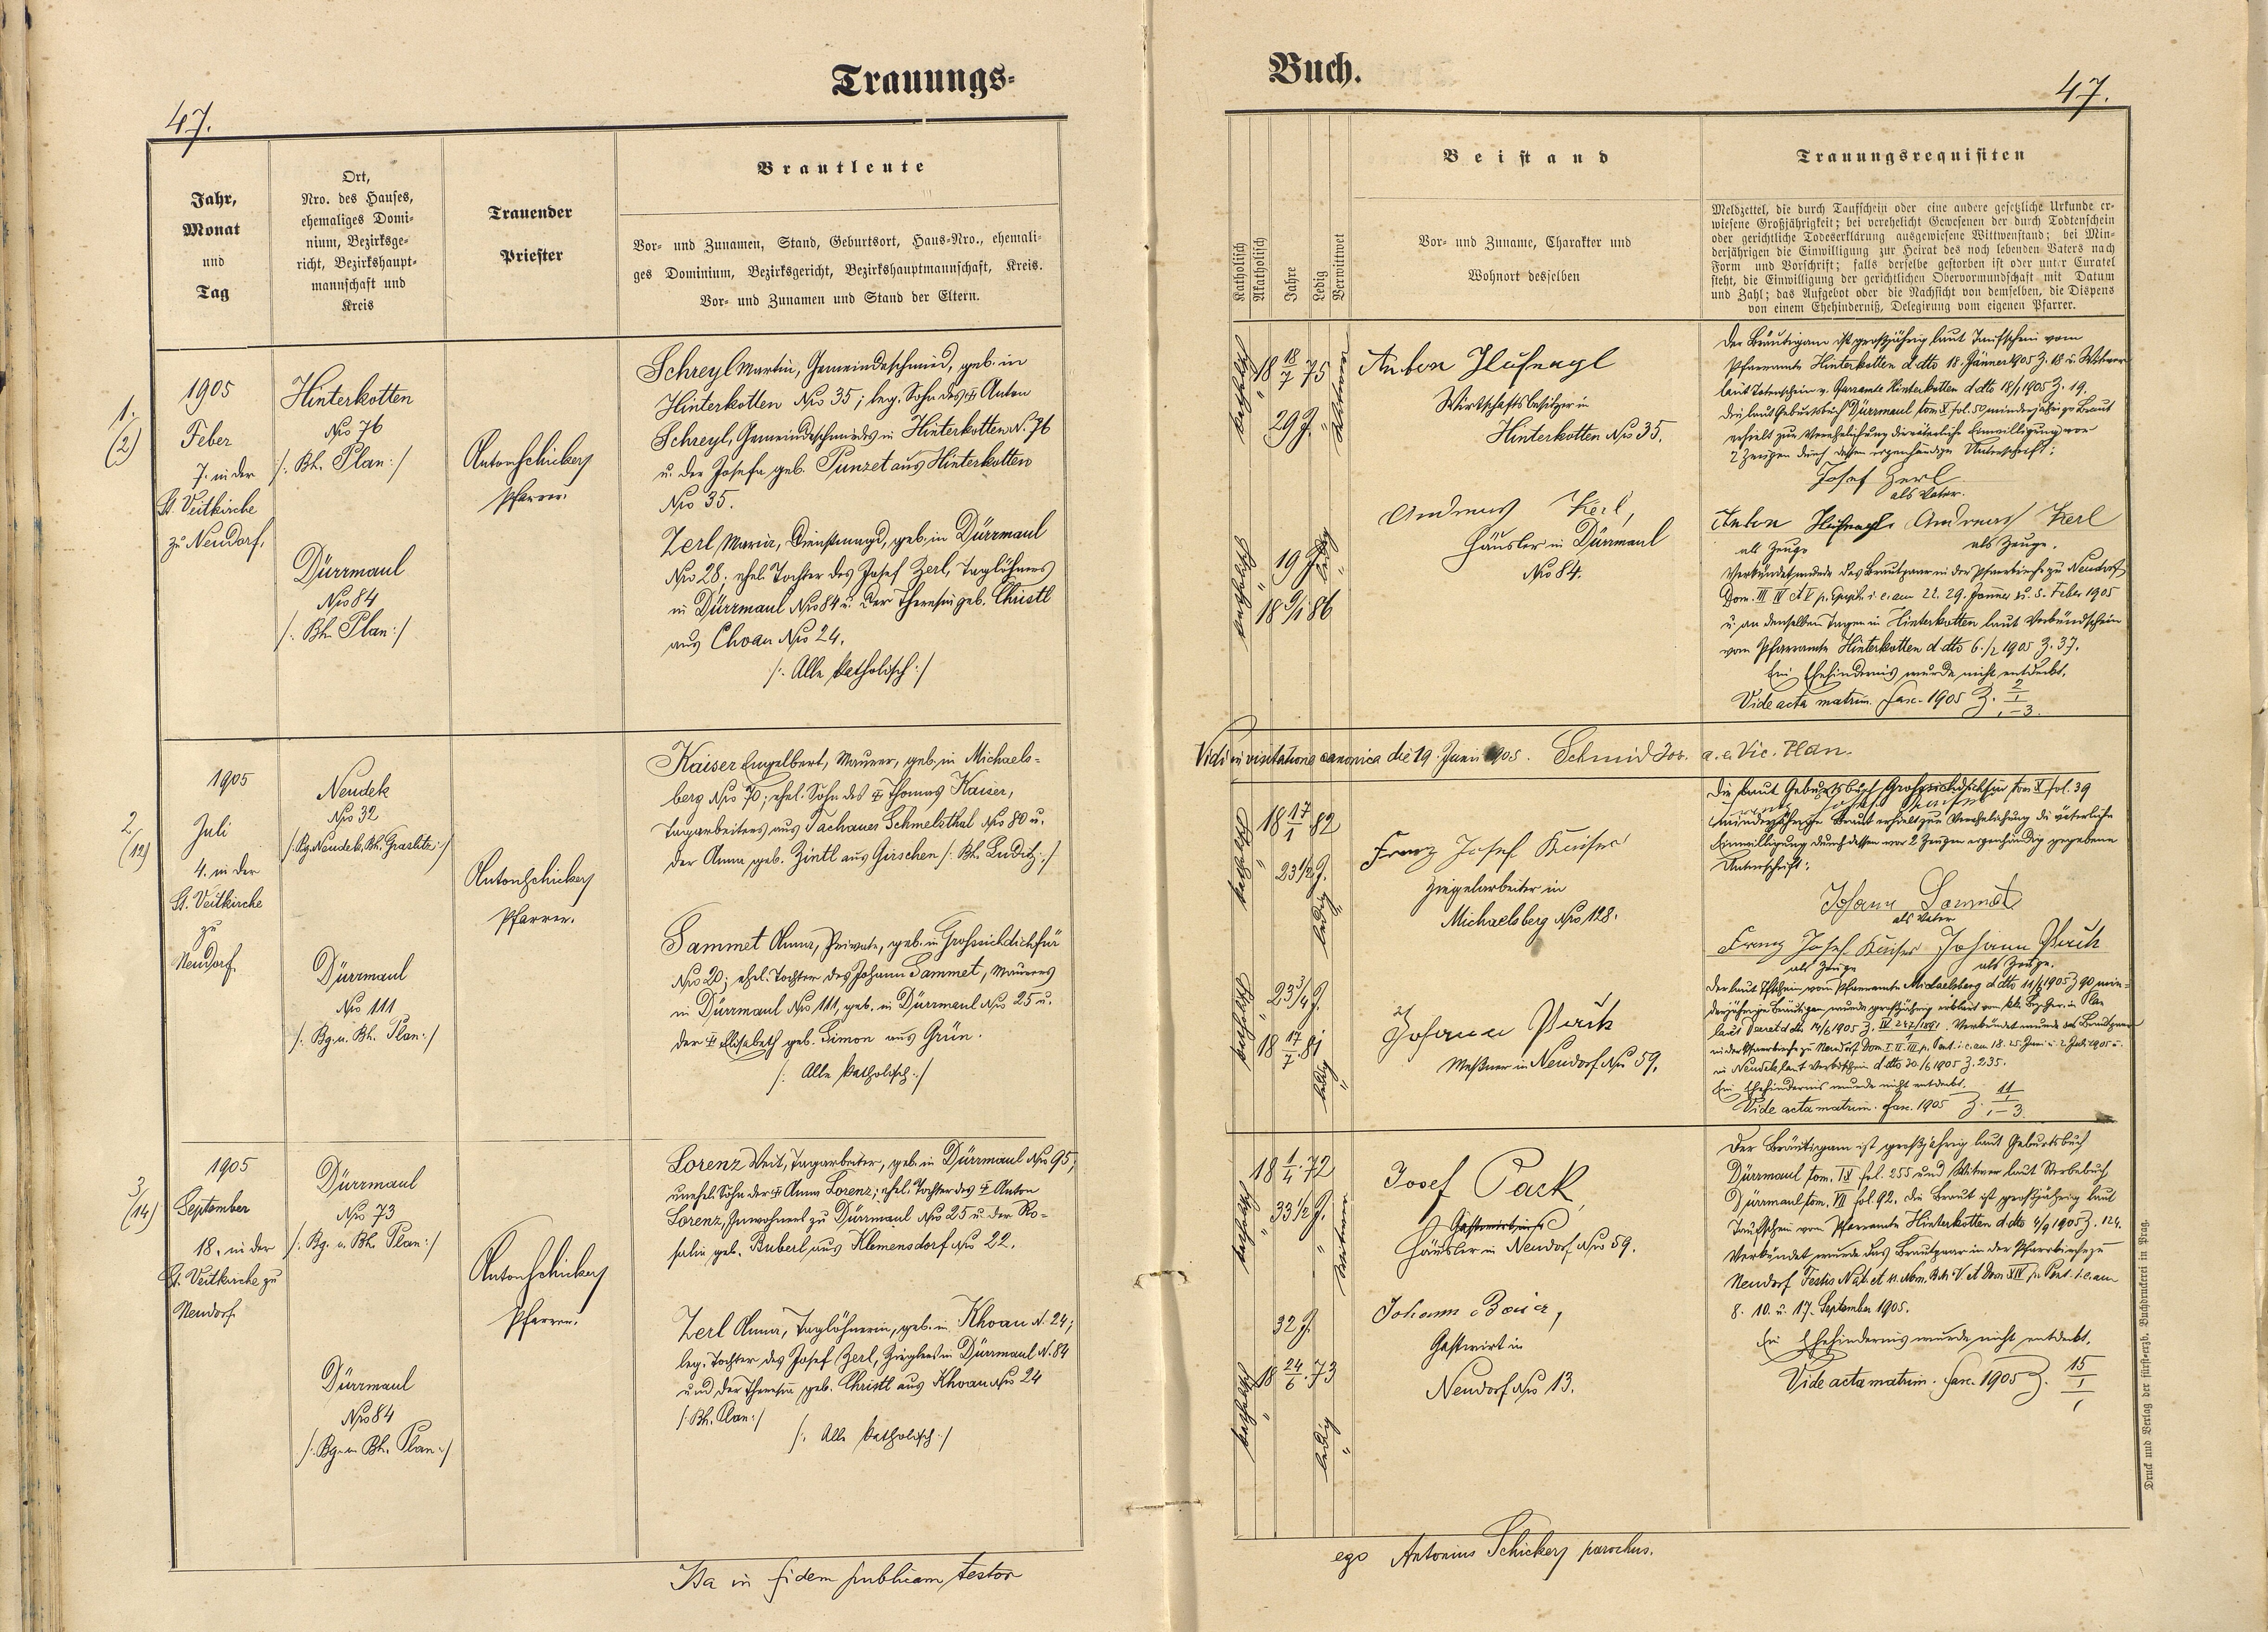 Trauungs-
47.
Jahr,
Monat
und
Tag
Ort,
Nro. des Hauses,
ehemaliges Domi-
nium, Bezirksge-
richt, Bezirkshaupt-
mannschaft und
Kreis
Trauender
Priester
Brautleute
Vor- und Zunamen, Stand, Geburtsort, Haus-Nro., ehemali-
ges Dominium, Bezirksgericht, Bezirkshauptmannschaft, Kreis.
Vor- und Zunamen und Stand der Eltern.
1.
(2)
1905
Feber
7. in der
St. Veitkirche
zu Neudorf.
Hinterkotten
Nro 76
/: Bh. Plan :/
Dürrmaul
Nro 84
/: Bh. Plan :/
Anton Schickery
Pfarrer.
Schreyl Martin, Gemeindeschmied, geb. in
Hinterkotten Nro 35; leg. Sohn des ✝ Anton
Schreyl, Gemeindeschmiedes in Hinterkotten N. 76
u. der Josefa geb. Punzet aus Hinterkotten
Nro 35.
Zerl Maria, Dienstmagd, geb. in Dürrmaul
Nro 28; ehel. Tochter des Josef Zerl, Taglöhners
in Dürrmaul Nro 84 u. der Theresia geb. Christl
aus Choau Nro 24.
/: Alle katholisch :/
2
(12)
1905
Juli
4. in der
St. Veitkirche
zu
Neudorf.
Neudek
Nro 32
/: Bg. Neudek, Bh. Graslitz :/
Dürrmaul
Nro 111
/: Bg. u. Bh. Plan :/
Anton Schickery
Pfarrer.
Kaiser Engelbert, Maurer, geb. in Michaels-
berg Nro 70; ehel. Sohn des ✝ Thomas Kaiser,
Tagarbeiters aus Tachauer Schmelzthal Nro 80 u.
der Anna geb. Zintl aus Girschen /: Bh. Luditz :/
Sammet Anna, Private, geb. in Grosssichdichfür
Nro 20; ehel. Tochter des Johann Sammet, Maurers
in Dürrmaul Nro 111, geb. in Dürrmaul Nro 25 u.
der ✝ Elisabeth geb. Simon aus Grün.
/: Alle katholisch :/
3
(14)
1905
September
18. in der
St. Veitkirche zu
Neudorf.
Dürrmaul
Nro 73
/: Bg. u. Bh. Plan :/
Dürrmaul
Nro 84
/: Bg. u. Bh. Plan :/
Anton Schickery
Pfarrer.
Lorenz Veit, Tagarbeiter, geb. in Dürrmaul Nro 95;
unehel. Sohn der ✝ Anna Lorenz; ehel. Tochter des ✝ Anton
Lorenz, Inwohners zu Dürrmaul Nro 25 u. der Ro-
salia geb. Buberl aus Klemensdorf Nro 22.
Zerl Anna, Taglöhnerin, geb. in Khoau N. 24;
leg. Tochter des Josef Zerl, Zieglers in Dürrmaul N. 84
und der Theresia geb. Christl aus Khoau Nro 24
/: Bh. Plan :/
/: Alle katholisch :/
Ita in fidem publicam testor
Buch.
47.
Katholisch
Akatholisch
Jahre
Ledig
Verwittwet
Beistand
Vor- und Zuname, Charakter und
Wohnort desselben
Trauungsrequisiten
Meldzettel, die durch Taufschein oder eine andere gesetzliche Urkunde er-
wiesene Großjährigkeit; bei verehelicht Gewesenen der durch Todtenschein
oder gerichtliche Todeserklärung ausgewiesene Wittwenstand; bei Min-
derjährigen die Einwilligung zur Heirat des noch lebenden Vaters nach
Form und Vorschrift; falls derselbe gestorben ist oder unter Curatel
steht, die Einwilligung der gerichtlichen Obervormundschaft mit Datum
und Zahl; das Aufgebot oder die Nachsicht von demselben, die Dispens
von einem Ehehinderniß, Delegirung vom eigenen Pfarrer.
katholisch
18 18/7 75
29 J.
Witwer
Anton Hufnagl
Wirtschaftsbesitzer in
Hinterkotten Nro 35.
katholisch
19 J.
18 9/1 86
ledig
Andreas Kerl,
Häusler in Dürrmaul
Nro 84.
Der Bräutigam ist großjährig laut Taufschein vom
Pfarramte Hinterkotten d dto 18. Jänner 1905 Z. 18 u. Witwer
laut Totenschein v. Pfarramte Hinterkotten d dto 18/1 1905 Z. 19.
Die laut Geburtsbuch Dürrmaul tom. X fol. 50 minderjährige Braut
erhielt zur Verehelichung die väterliche Einwilligung vor
2 Zeugen durch dessen eigenhändige Unterschrift:
Josef Zerl
als Vater.
Anton Hufnagl Andreas Kerl
als Zeuge als Zeuge.
Verkündet wurde das Brautpaar in der Pfarrkirche zu Neudorf
Dom. III IV et V p. Epiph. i. e. am 22. 29. Jänner u. 5. Feber 1905
u. an denselben Tagen in Hinterkotten laut Verkündschein
vom Pfarramte Hinterkotten d dto 6./2 1905 Z. 37.
Ein Ehehindernis wurde nicht entdeckt.
Vide acta matrim. Fasc. 1905 Z. 2/1-3.
Vidi in visitatione canonica die 19. Junii 1905. Schmid Jos. a. e. Vic. Plan.
katholisch
18 17/1 82
23 1/2 J.
ledig
Franz Josef Kaiser
Ziegelarbeiter in
Michaelsberg Nro 128.
katholisch
23 3/4 J.
18 17/7 81
ledig
Johann
Meßner in Neudorf Nro 59.
Die laut Geburtsbuch Grosssichdichfür tom X fol. 39
minderjährige Braut erhielt zur Verehelichung die väterliche
Einwilligung durch dessen vor 2 Zeugen eigenhändig gegebene
Unterschrift:
Johann Sammet
als Vater
Franz Josef Kaiser Johann
als Zeuge als Zeuge.
Der laut Tfschein vom Pfarramte Michaelsberg d dto 11/6 1905 Z 90 min-
derjährige Bräutigam wurde großjährig erklärt vom k.k. Bez. Ger. in Plan
laut Decret d dto 14/6 1905 Z. Verkündet wurde das Brautpaar
in der Pfarrkirche zu Neudorf Dom. I. II. III p. Pent. i. e. am 18. 25. Juni u. 2 Juli 1905 u.
in Neudek laut Verkschein d dto 30./6 1905 Z. 235.
Ein Ehehindernis wurde nicht entdeckt.
Vide acta matrim. Fasc. 1905 Z. 11/1-3
katholisch
18 1/4 72
33 1/2 J.
Witwer
Josef Pack
Gastwirt in
Häusler in Neudorf Nro 59.
katholisch
32 J.
18 24/6 73
ledig
Johann Baier,
Gastwirt in
Neudorf Nro 13.
Der Bräutigam ist großjährig laut Geburtsbuch
Dürrmaul tom. IX fol. 255 und Witwer laut Sterbebuch
Dürrmaul tom. VII fol. 92. Die Braut ist großjährig laut
Taufschein vom Pfarramte Hinterkotten d dto 4/9 1905 Z. 124.
Verkündet wurde das Brautpaar in der Pfarrkirche zu
Neudorf Festis Nat. et ss. Nom. B. M. V. et Dom XIV p. Pent. i. e. am
8. 10. u. 17. September 1905.
Ein Ehehindernis wurde nicht entdeckt.
Vide acta matrim. Fasc. 1905 Z. 15/1
Druck und Verlag der fürst-erzb. Buchdruckerei in Prag.
ego Antonius Schickery parochus.